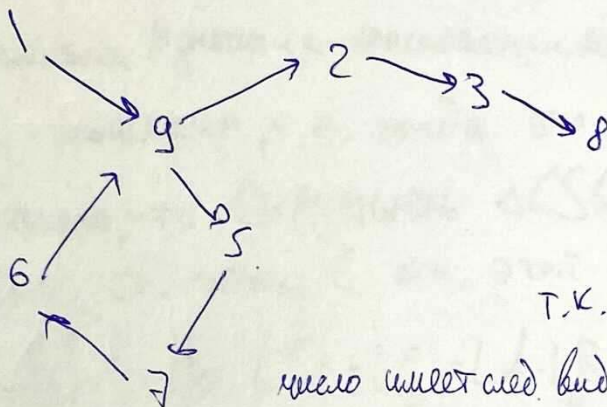 1
9 2 3 8
5
6
7
т.к.
число имеет след вид